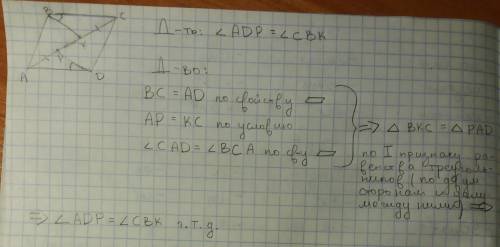 B C
A D
Д-ть: ∠ADP = ∠CBK
Д-во:
BC = AD по свойству ▱
AP = KC по условию
∠CAD = ∠BCA по св-ву ▱
⇒ △BKC = △PAD
по I признаку ра-
венства треуголь-
ников (по двум
сторонам и углу
между ними) ⇒
⇒ ∠ADP = ∠CBK ч.т.д.